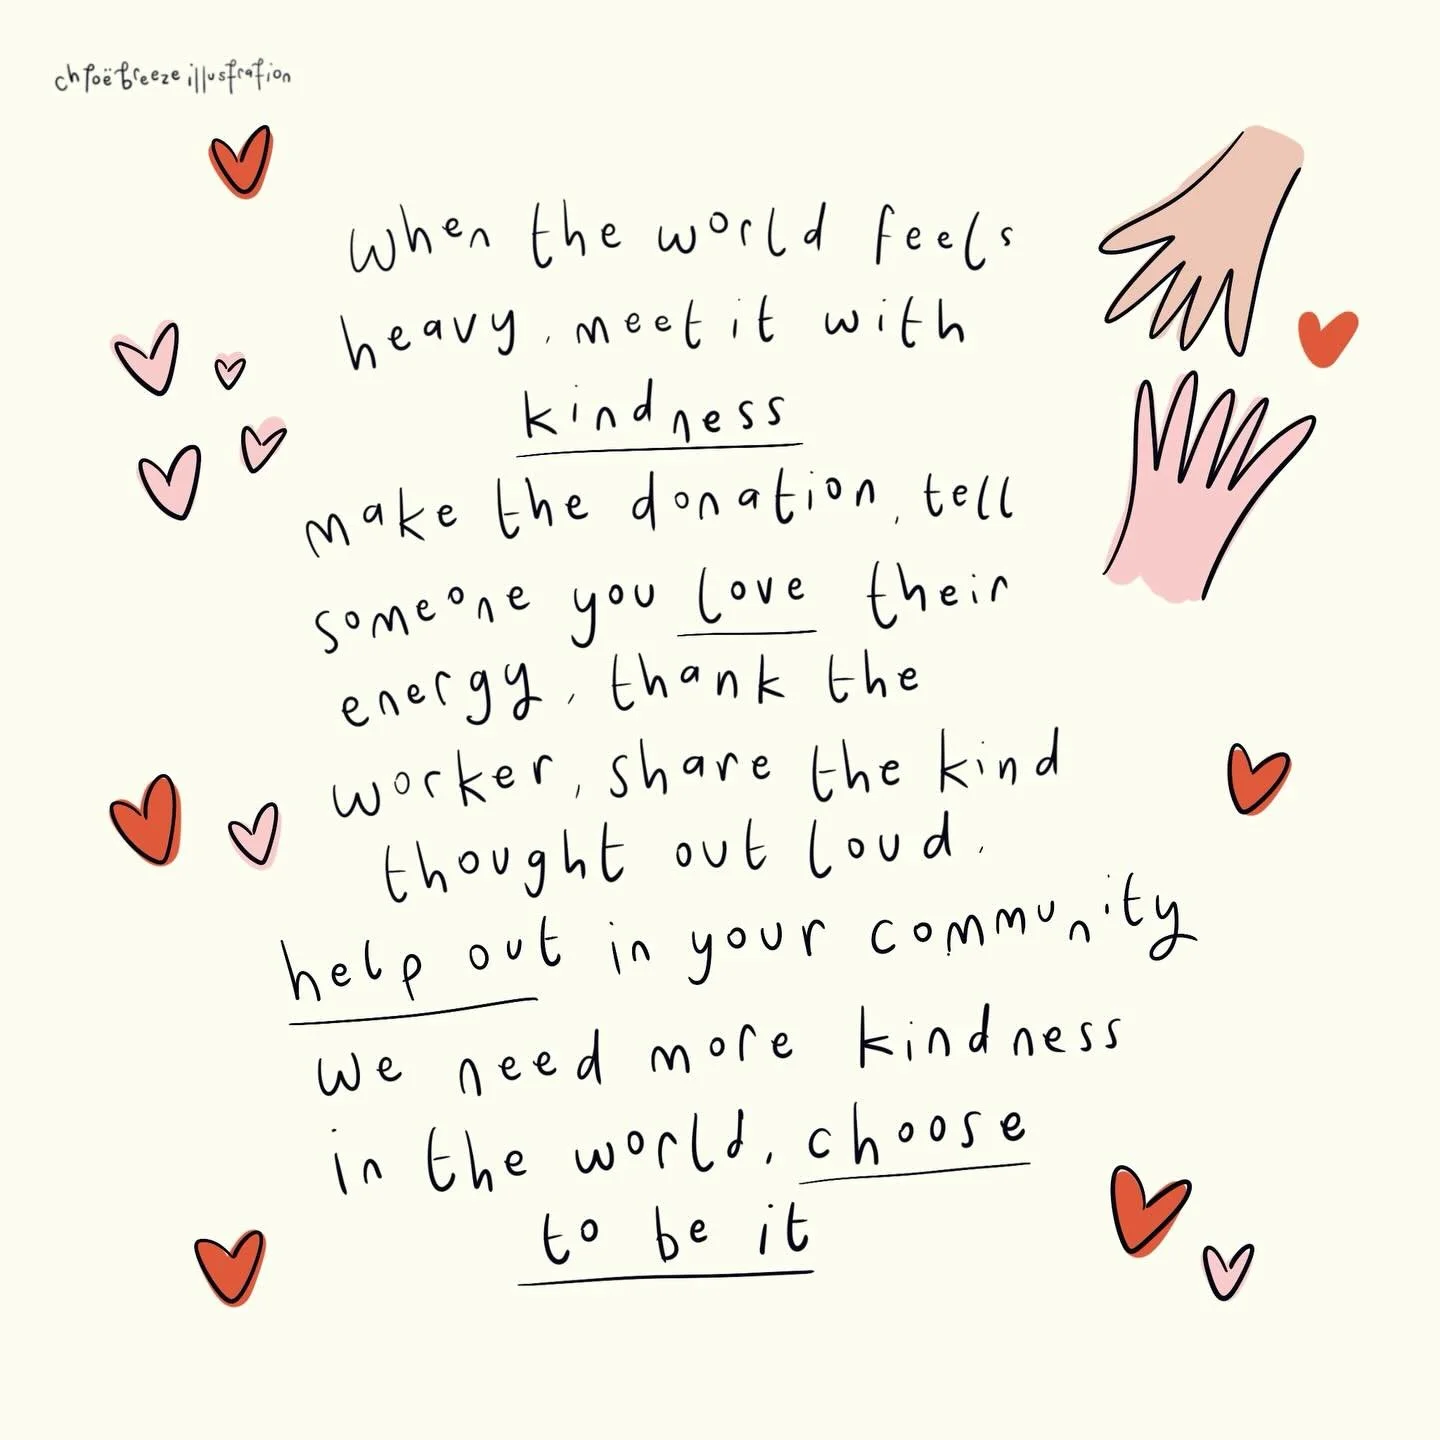 chloëbreezeillustration
when the world feels
heavy, meet it with
kindness
make the donation, tell
someone you love their
energy, thank the
worker, share the kind
thought out loud.
help out in your community
we need more kindness
in the world, choose
to be it